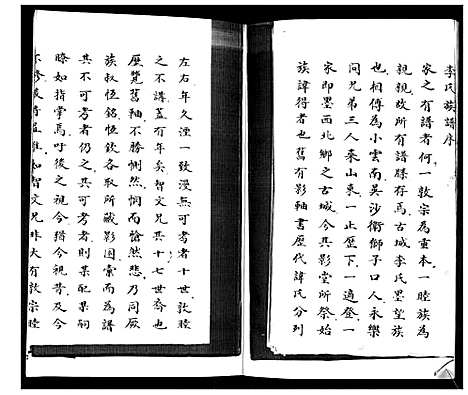 李氏族譜序
家之有譜者何一敦宗為重本一睦族為
親親故所有譜牒存焉古城李氏墨望族
也相傳為小雲南吳沙衛獅子口人永樂
间兄弟三人來山東一止歷下一適登一
家即墨西北鄉之古城今其影堂所祭始
族諱得者也舊有影軸書歷代諱氏分列
左右年久湮一致漫無可考者十世敦睦
之不講蓋有年矣智文兄其十七世裔也
歷覽舊軸不勝惻然惻而愴然悲乃同厥
族叔恆銘恆欽各取所藏影圖彙而為譜
其不可考者仍之其可考者則某配某嗣
瞭如指掌焉吁後之視今猶今視昔及今
不修後將益難如智文兄非大有敦宗睦